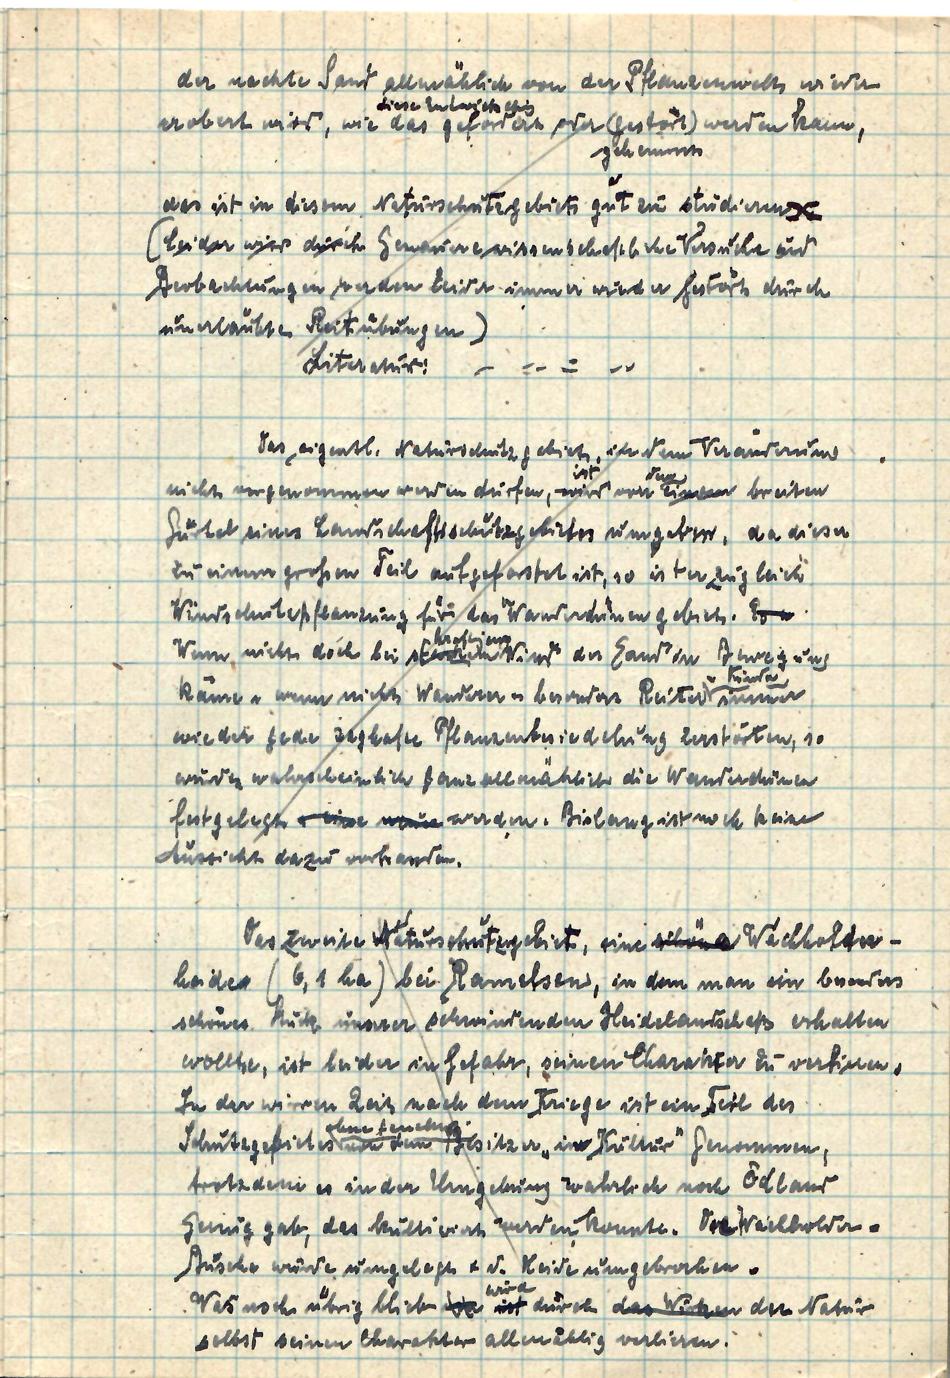 der nackte Sand allmählich von der Pflanzenwelt wieder
diese Entwicklg
erobert wird, wie das gefördert oder (gestört) werden kann,
gehemmt
das ist in diesem Naturschutzgebiet gut zu studieren
(Leider wird durch Genauere wissenschaftliche Versuche und
Beobachtungen werden leider immer wieder gestört durch
unerlaubte Reitübungen)
Literatur:
Das eigentl. Naturschutzgebiet, in dem Veränderung
ist den
nicht vorgenommen werden dürfen, wird von einem breiten
Gürtel eines Landschaftsschutzgebietes umgeben, da dieser
zu einem großen Teil aufgeforstet ist, so ist er zugleich
Windschutzpflanzung für das Wanderdünengebiet. Es
kräftigem
Wenn nicht doch bei starkem Wind der Sand in Bewegung
u. Kinder
käme u wenn nicht Wanderer u besonders Reiter immer
wieder jede zaghafte Pflanzenbesiedelung zerstörten, so
würden wahrscheinlich ganz allmählich die Wanderdünen
festgelegt eine neue werden. Bislang ist noch keine
Aussicht dazu vorhanden.
Das zweite Naturschutzgebiet, eine schöne Wacholder-
heide (6,1 ha) bei Ramelsen, in dem man ein besonders
schönes Stück unserer schwindenden Heidelandschaft erhalten
wollte, ist leider in Gefahr, seinen Charakter zu verlieren.
In der wirren Zeit nach dem Kriege ist ein Teil des
ohne Genehmg.
Schutzgebietes von dem Besitzer "in Kultur" genommen,
trotzdem es in der Umgebung wahrlich noch Ödland
genug gab, das kultiviert werden konnte. Die Wacholder-
Büsche wurde umgelegt u. d. Heide umgebrochen.
wird
Was noch übrig blieb ist durch das Wirken der Natur
selbst seinen Charakter allmählig verlieren.